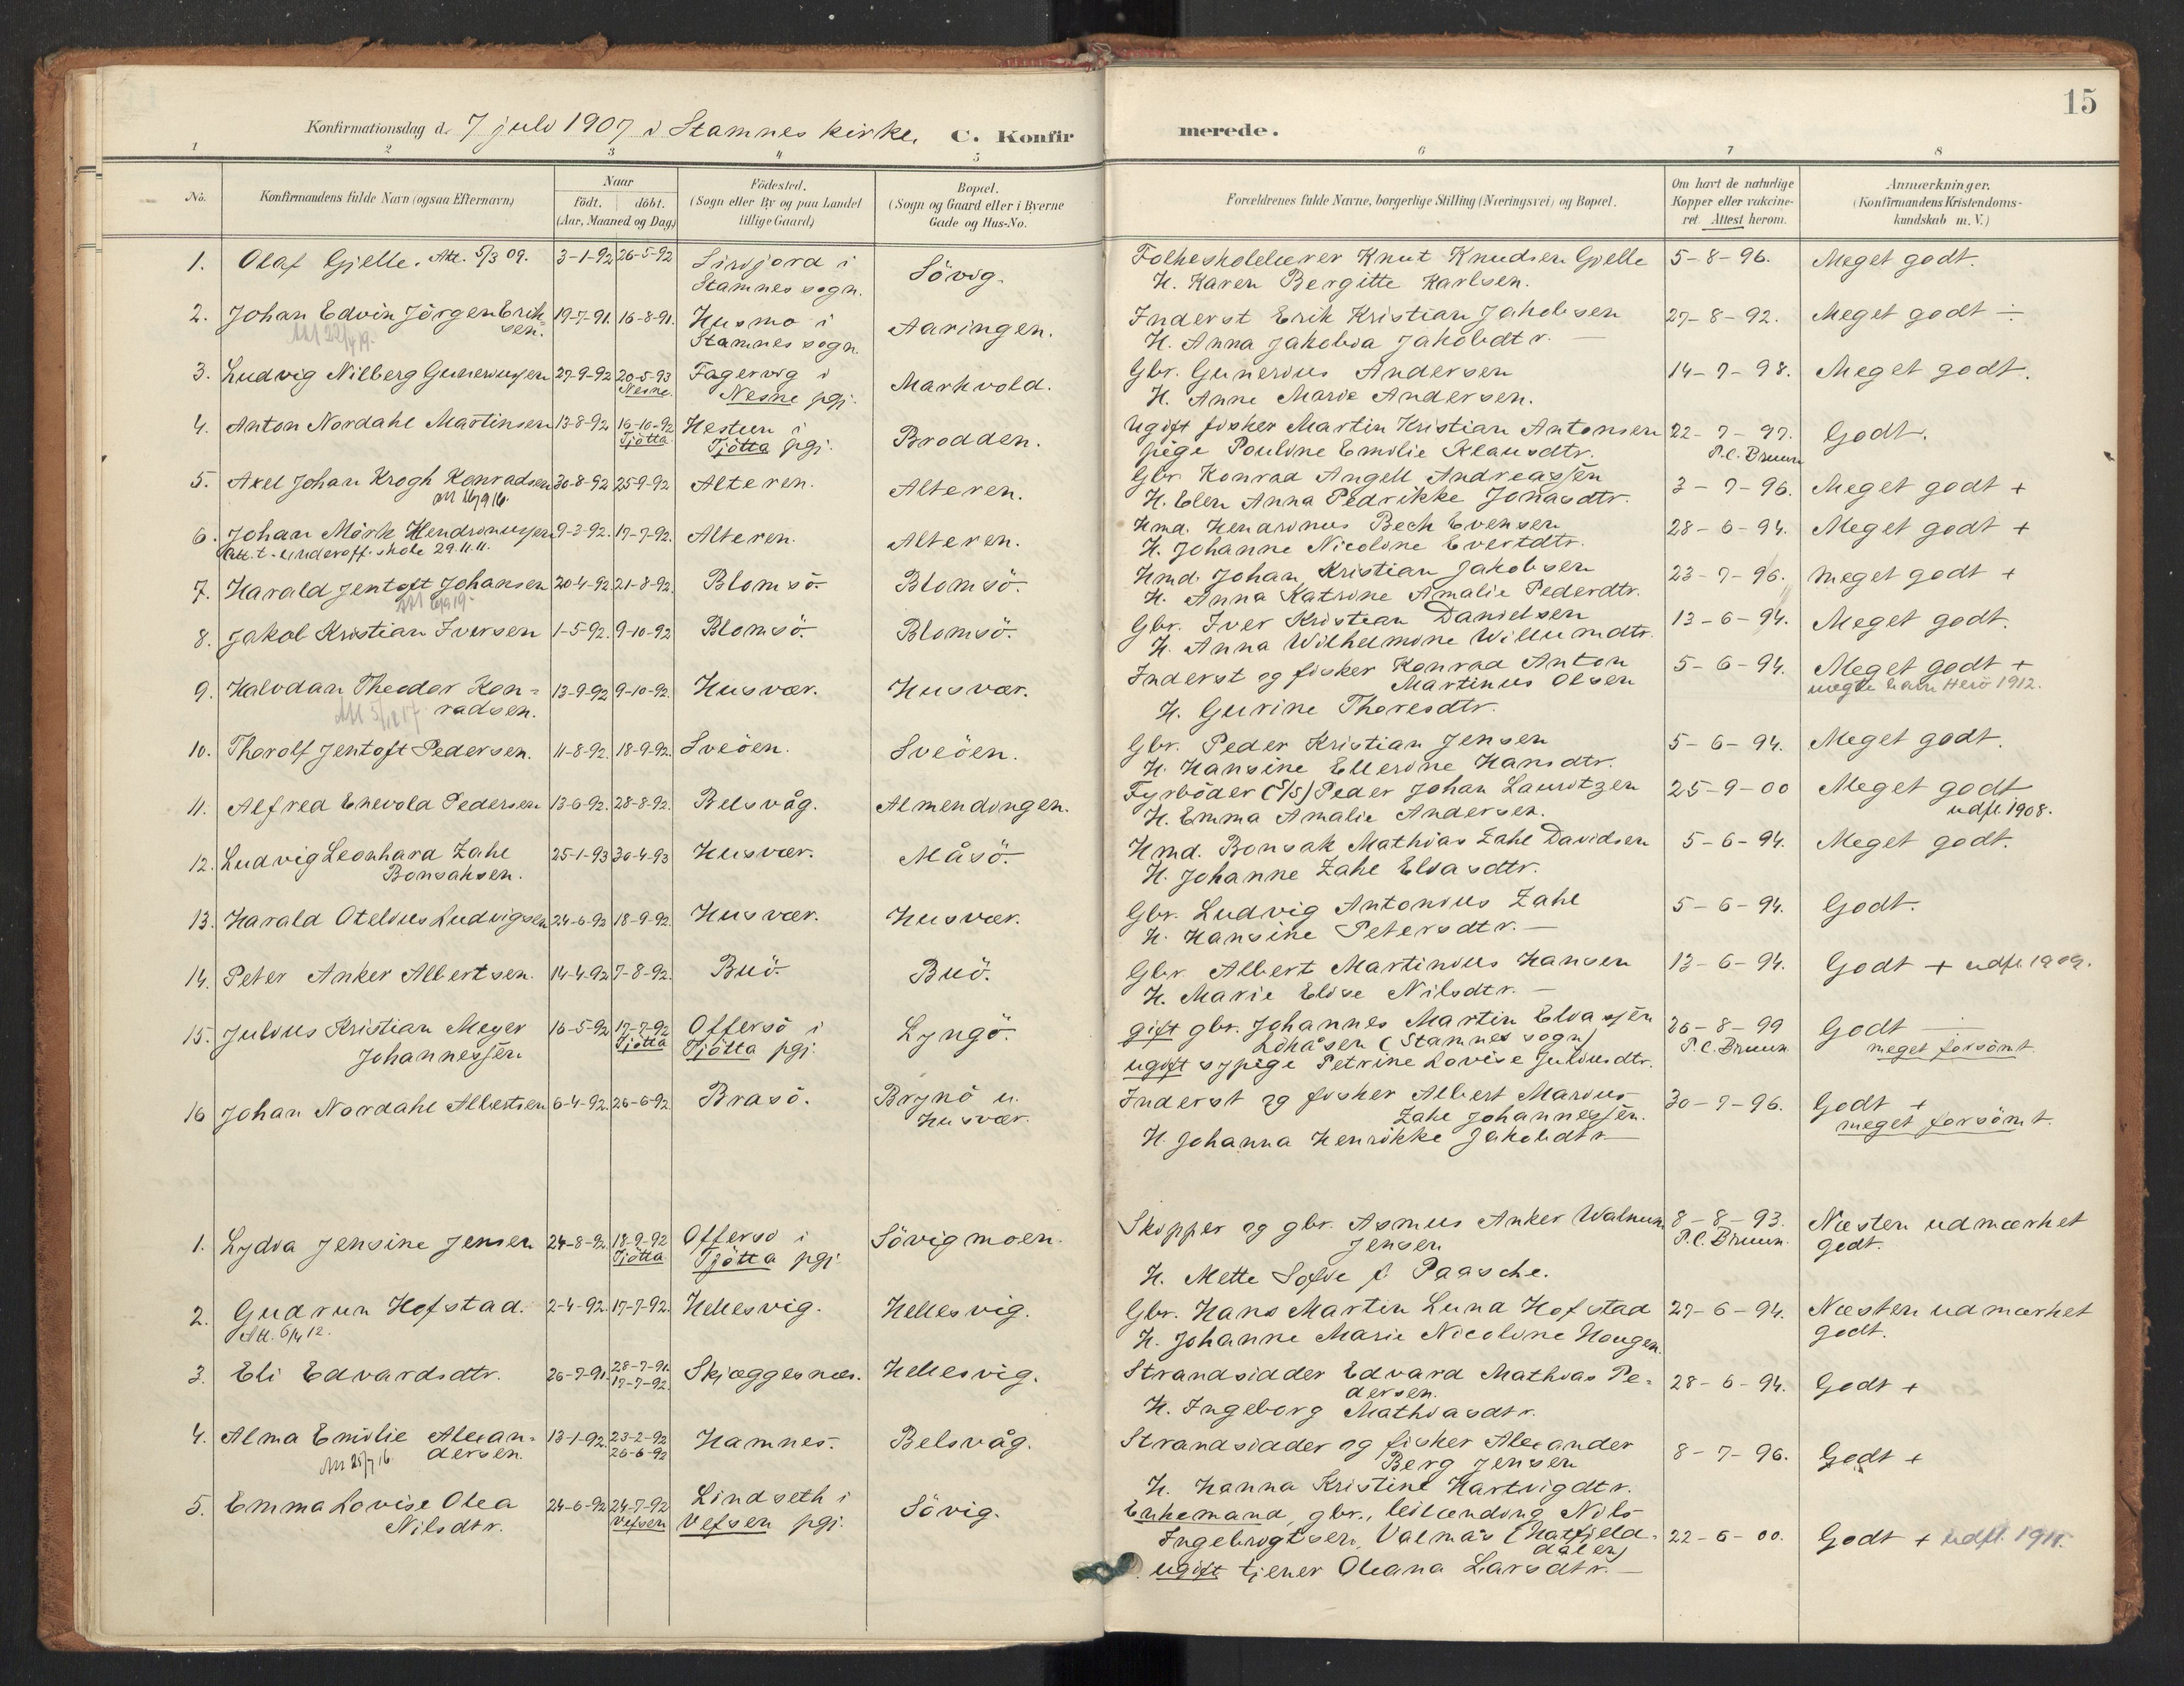 15
Konfirmationsdag d. 7 juli 1907 i Stamnes kirke. C. Konfirmerede.
1 2 3 4 5 6 7 8
No. Konfirmandens fulde Navn (ogsaa Efternavn) Naar födt. döbt. (Aar, Maaned og Dag) Födested. (Sogn eller By og paa Landet tillige Gaard) Bopæl. (Sogn og Gaard eller i Byerne Gade og Hus-No. Forældrenes fulde Navne, borgerlige Stilling (Næringsvei) og Bopæl. Om havt de naturlige Kopper eller vakcineret. Attest herom. Anmærkninger. (Konfirmandens Kristendomskundskab m. V.)
1. Olaf Gjelle. Att. 5/3 09. 3-1-92 26-5-92 Sivjord i Stamnes sogn. Sövig. Folkeskolelærer Knut Knudsen Gjelle 5-8-96. Meget godt.
H. Karen Bergitte Karlsen.
2. Johan Edvin Jörgen Eriksen. 19-7-91. 16-8-91. Husmo i Stamnes sogn. Aaringen. Inderst Erik Kristian Jakobsen 27-8-92. Meget godt ÷
H. Anna Jakobia Jakobdtr. —
3. Ludvig Nilberg Guneriussen 27-9-92 20-5-93 Nesne. Fagervig i Nesne pgj. Markvold. Gbr. Gunerius Andersen 14-7-98. Meget godt.
H. Anne Marie Andersen.
4. Anton Nordahl Martinsen 13-8-92 16-10-92 Tjötta Hestun i Tjötta pgj. Brodden. Ugift fisker Martin Kristian Antonsen 22-7-97. P.C. Bruun Godt.
pige Pouline Emilie Klausdtr.
5. Axel Johan Krogh Konradsen 30-8-92 25-9-92 Alteren. Alteren. Gbr. Konrad Angell Andreassen 3-7-96. Meget godt +
H. Elen Anna Pedrikke Jonasdtr.
6. Johan Mörk Hendrinussen 9-3-92. 17-7-92. Alteren. Alteren. Hmd. Hendrinus Bech Evensen 28-6-94. Meget godt +
Att. t. Underoff. skole 29.11.11. H. Johanne Nicoline Evertdtr.
7. Harald Jentoft Johansen 20-4-92 21-8-92. Blomsö. Blomsö. Hmd. Johan Kristian Jakobsen 23-7-96. Meget godt +
H. Anna Katrine Amalie Pederdtr.
8. Jakob Kristian Iversen 1-5-92. 9-10-92 Blomsö. Blomsö. Gbr. Iver Kristian Danielsen 13-6-94. Meget godt.
H. Anna Wilhelmine Willumdtr.
9. Halvdan Theodor Konradsen. 13-9-92 9-10-92. Husvær. Husvær. Inderst og fisker Konrad Anton Martinus Olsen 5-6-94. Meget godt +
H. Gurine Thoresdtr.
10. Thorolf Jentoft Pedersen. 11-8-92. 18-9-92. Sveöen. Sveöen. Gbr. Peder Kristian Jensen 5-6-94. Meget godt.
H. Hansine Ellerine Hansdtr.
11. Alfred Enevold Pedersen 13-6-92. 28-8-92. Belsvåg. Almendingen. Fyrböder (S/S) Peder Johan Lauritzen 25-9-00 Meget godt udfl. 1908.
H. Emma Amalie Andersen.
12. Ludvig Leonhard Zahl Bonsaksen. 25-1-93 30-4-93 Husvær. Måsö. Hmd. Bonsak Mathias Zahl Davidsen 5-6-94. Meget godt.
H. Johanne Zahl Eliasdtr.
13. Harald Otelius Ludvigsen 24-6-92 18-9-92. Husvær. Husvær. Gbr. Ludvig Antonius Zahl 5-6-94. Godt.
H. Hansine Petersdtr. —
14. Peter Anker Albertsen. 14-4-92 7-8-92. Buö. Buö. Gbr. Albert Martinius Hansen 13-6-94. Godt + udfl. 1909.
H. Marie Elise Nilsdtr. —
15. Julius Kristian Meyer Johannessen 16-5-92 17-7-92 Tjötta Offersö i Tjötta pgj. Lyngö. gift gbr. Johannes Martin Eliassen 26-8-99 P.C. Bruun Godt ÷ meget forsömt
(Stamnes sogn)
ugift sypige Petrine Lovise Juliusdtr.
16 Johan Nordahl Albertsen 6-4-92. 26-6-92 Brasö. Brynö u. Husvær. Inderst og fisker Albert Marius Zahl Johannessen. 30-7-96. Godt + meget forsömt.
H. Johanna Henrikke Jakobdtr —
1. Lydia Jensine Jensen 24-8-92. 18-9-92 Tjötta Offersö i Tjötta pgj. Sövigmoen. Skipper og gbr. Asmus Anker Walnum Jensen 8-8-93. P.C. Bruun. Næsten udmærket godt.
H. Mette Sofie f. Paasche.
2. Gudrun Hofstad. 2-4-92. 17-7-92. Hellesvig. Hellesvig. Gbr. Hans Martin Lund Hofstad 27-6-94. Næsten udmærket godt.
H. Johanne Marie Nicoline Haugen.
3. Eli Edvardsdtr. 26-7-91. 28-7-91. 17-7-92. Skjæggesnes. Hellesvig. Strandsidder Edvard Mathias Pedersen. 28-6-94. Godt +
H. Ingeborg Mathiasdtr.
4. Alma Emilie Alexandersen. 13-1-92. 23-2-92 26-6-92 Hamnes. Belsvåg. Strandsidder og fisker Alexander Berg Jensen 8-7-96. Godt +
H. Hanna Kristine Hartvigdtr.
5. Emma Lovise Olea Nilsdtr. 24-6-92 24-7-92 Vefsen Lindseth i Vefsen pgj. Sövig. Enkemand, gbr., leilænding Nils Ingebrigtsen, Valmås (Hatfjelddalen) 22-6-00. Godt + udfl. 1911.
ugift tjener Oleana Larsdtr. —